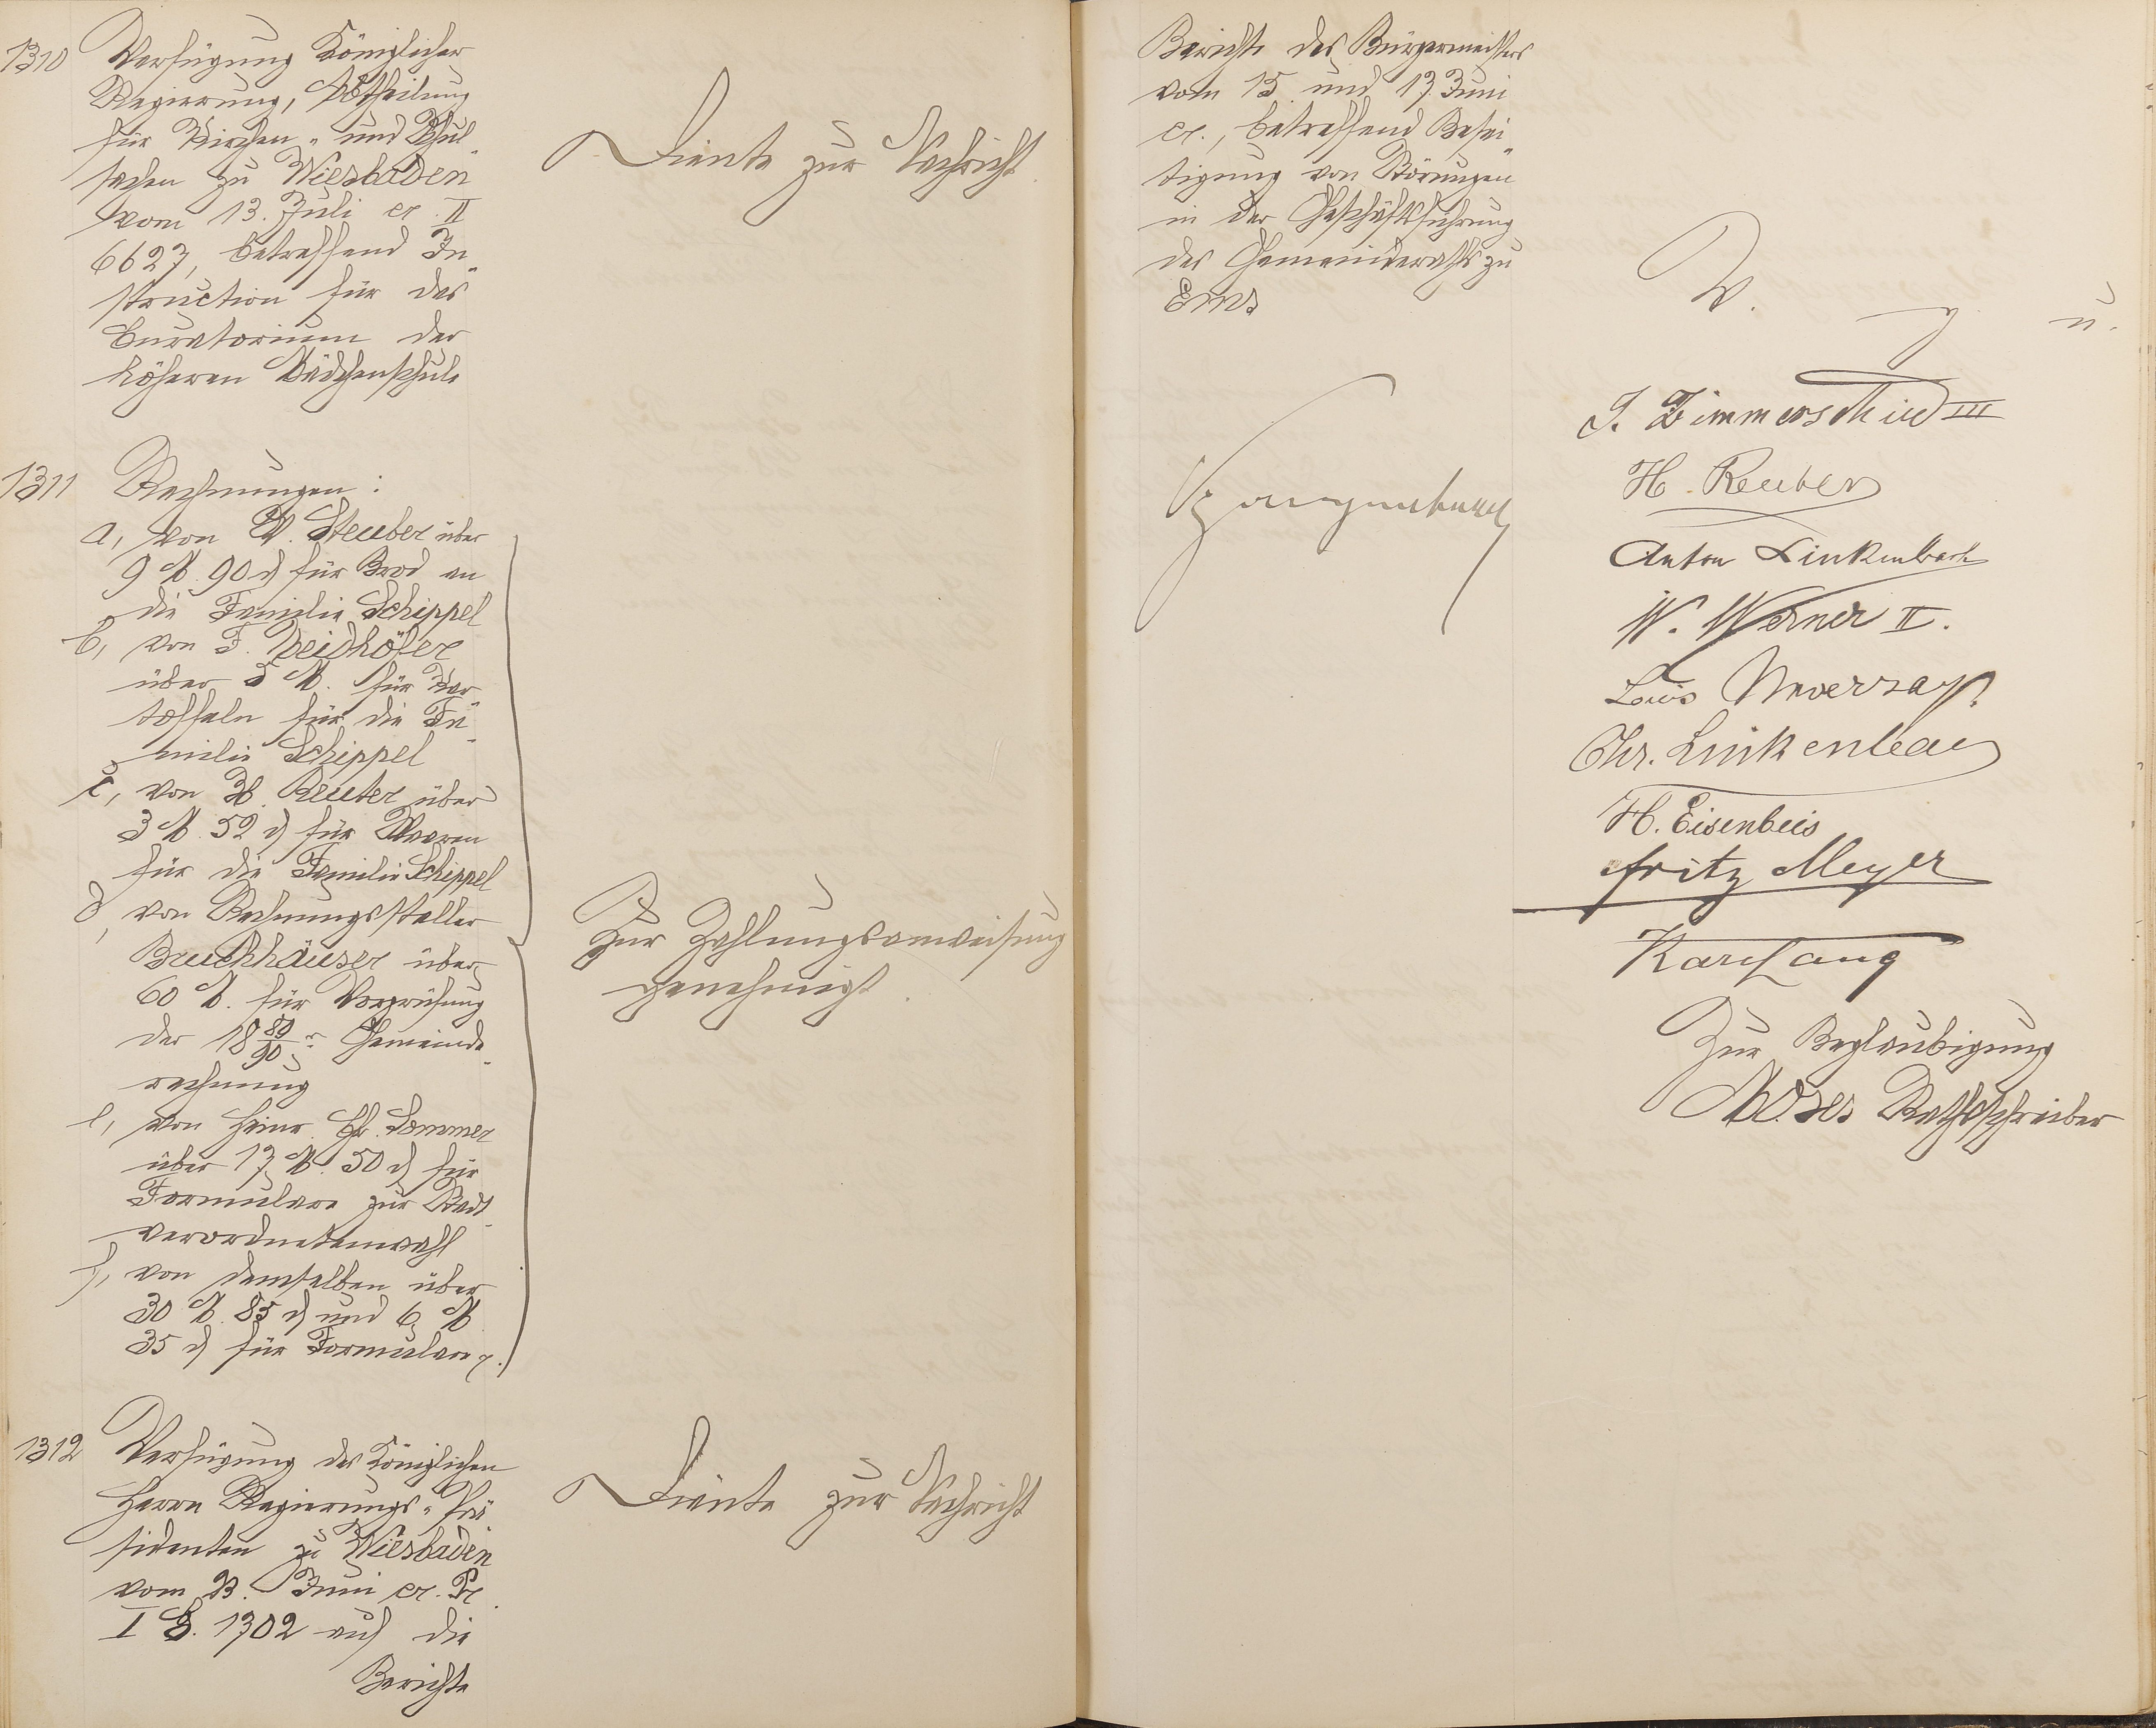 1310 Verfügung Königlicher
Regierung, Abtheilung
für Kirchen- und Schul-
sachen zu Wiesbaden
vom 13. Juli cr. II
6627, betreffend In-
struction für das
Curatorium der
höheren Mädchenschule
Diente zur Nachricht
1311 Rechnungen:
a, von W. Steuber über
9 M. 90 d für Brod an
die Familie Schippel
b, von F. Neidhöfer
über 5 M. für Kar-
toffeln für die Fa-
milie Schippel
c, von H. Reuter über
3 M. 52 d für Waaren
für die Familie Schippel
d, von Rechnungssteller
Bruchhäuser über
60 M. für Vorprüfung
der 18 89/90 r Gemeinde-
rechnung
e, von Heinr. Chr. Sommer
über 17 M. 50 d für
Formulare zur Stadt-
verordnetenwahl
f, von demselben über
30 M. 85 d und 6 M
35 d für Formulare
Zur Zahlungsanweisung
genehmigt
1312 Verfügung des Königlichen
Herrn Regierungs-Prä-
sidenten zu Wiesbaden
vom 23. Juni cr. Pr.
I G. 1702 auf die
Berichte
Diente zur Nachricht
Berichte des Bürgermeisters
vom 15. und 17. Juni
cr., betreffend Besei-
tigung von Störungen
in der Geschäftsführung
des Gemeinderaths zu
Ems
V. g. u.
J. Zimmerschied III
H. Reuter
Anton Linkenbach
W. Werner II.
Louis Unverzagt
Chr. Linkenbach
H. Eisenbeis
Fritz Meyer
Karl Lang
Zur Beglaubigung
Moses Rathsschreiber